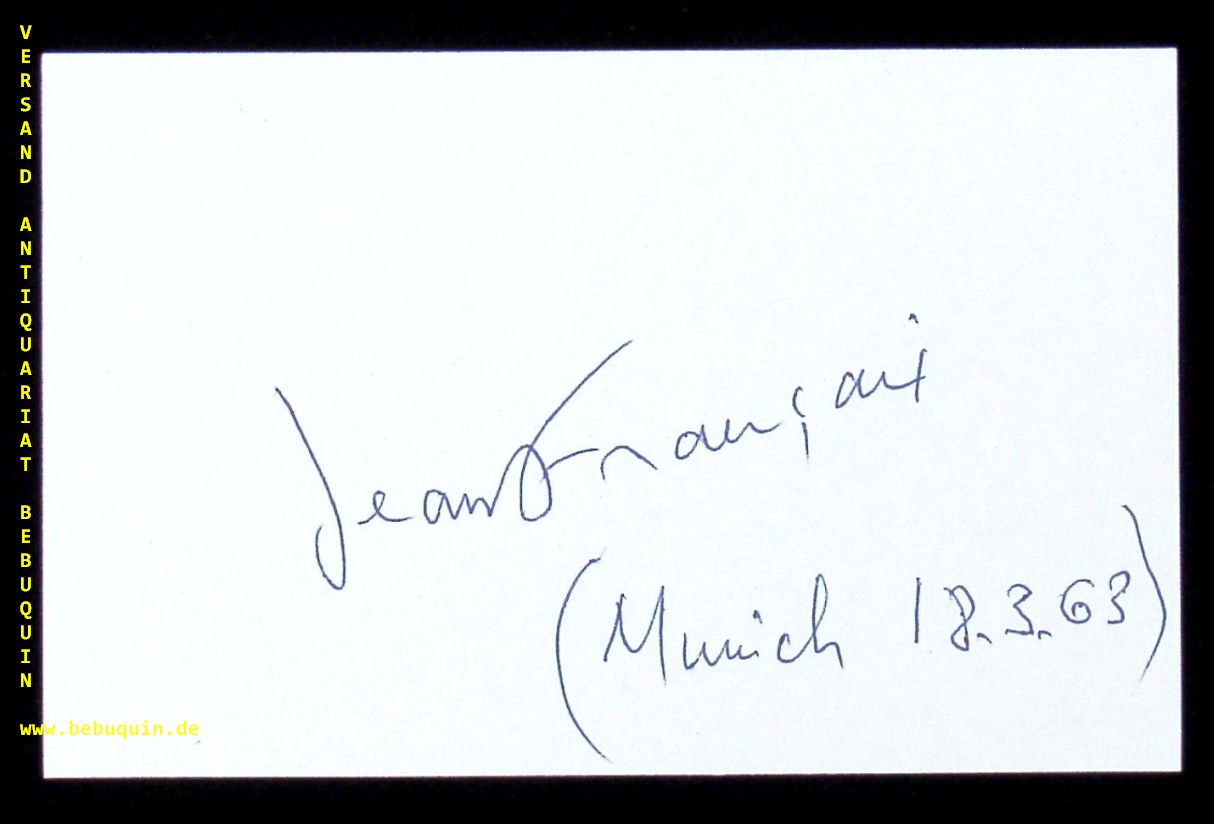 VERSAND ANTIQUARIAT BEBUQUIN
www.bebuquin.de
Jean Françaix
(Munich 18.3.63)